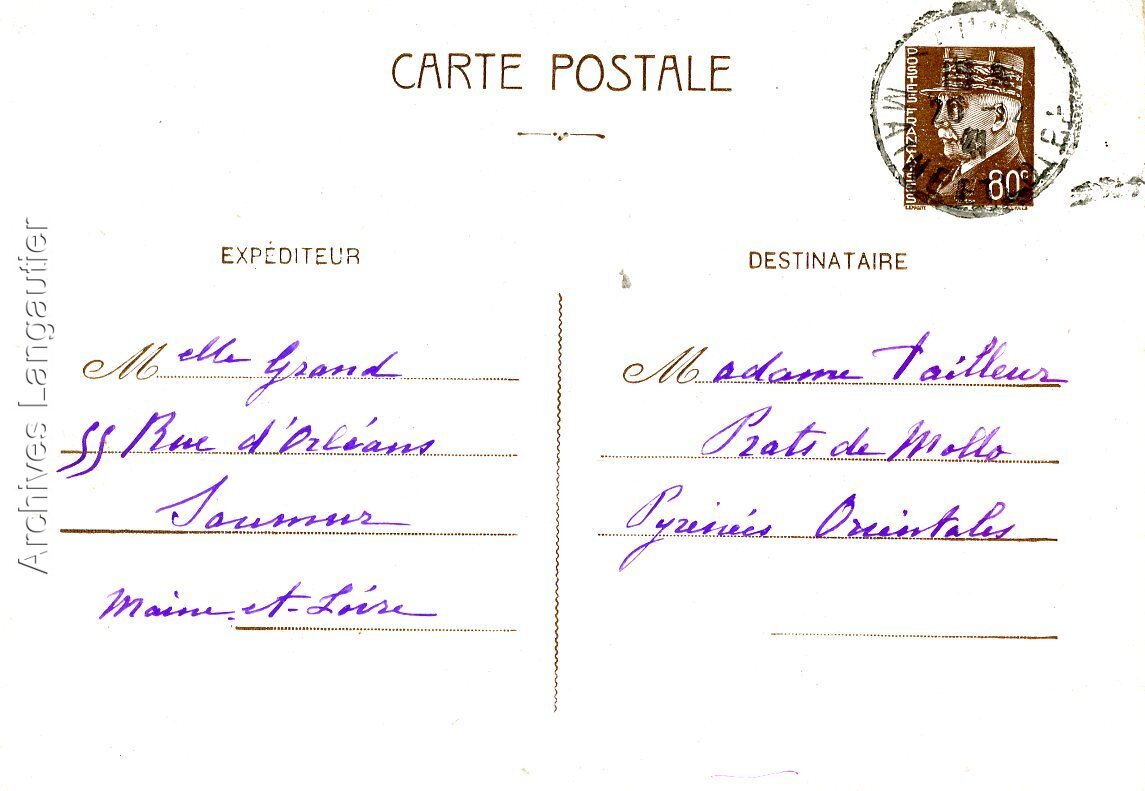 CARTE POSTALE
POSTES FRANÇAISES
80c
MAINE ET LOIRE
41
EXPÉDITEUR
Melle Grand
55 Rue d'Orléans
Saumur
Maine-et-Loire
DESTINATAIRE
Madame Tailleur
Prats de Mollo
Pyrénées Orientales
Archives Langautier